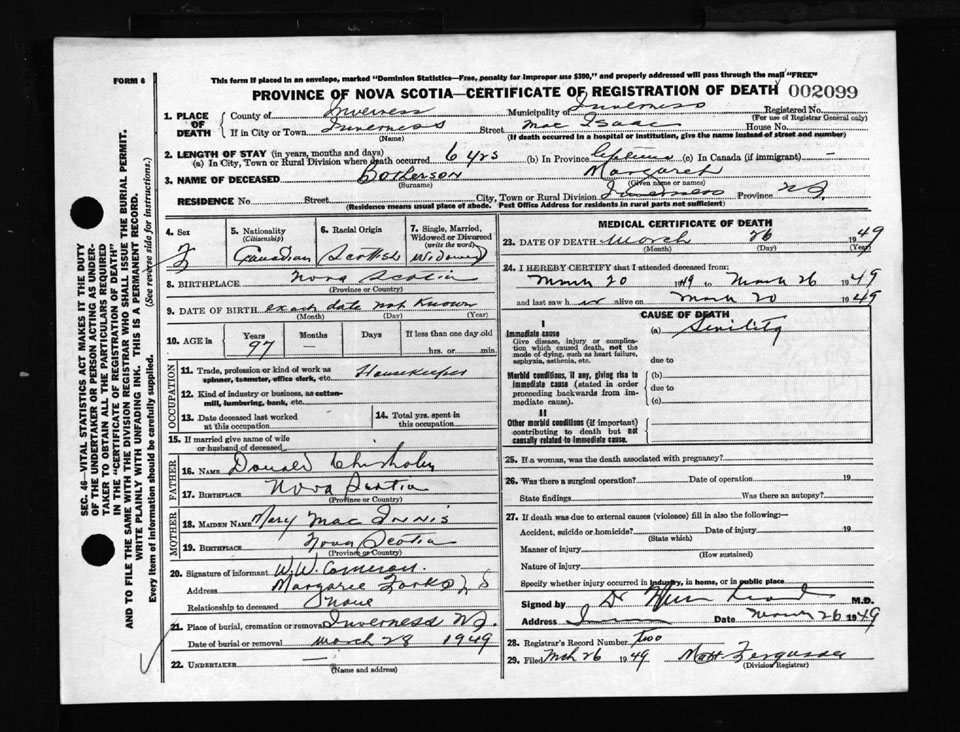 FORM 6
This form if placed in an envelope, marked "Dominion Statistics—Free, penalty for improper use $300," and properly addressed will pass through the mail "FREE"
PROVINCE OF NOVA SCOTIA—CERTIFICATE OF REGISTRATION OF DEATH 002099
1. PLACE OF DEATH
County of Inverness Municipality of Inverness Registered No.
(For use of Registrar General only)
If in City or Town Inverness Street Mac Isaac House No.
(Name) (If death occurred in a hospital or institution, give the name instead of street and number)
2. LENGTH OF STAY (in years, months and days)
(a) In City, Town or Rural Division where death occurred 6 yrs (b) In Province (c) In Canada (if immigrant) —
3. NAME OF DECEASED Margaret
(Surname) (Given name or names)
RESIDENCE No. Street City, Town or Rural Division Inverness Province N.S.
(Residence means usual place of abode. Post Office Address for residents in rural parts not sufficient)
4. Sex
F
5. Nationality
(Citizenship)
Canadian
6. Racial Origin
Scottish
7. Single, Married, Widowed or Divorced
(write the word)
Widowed
8. BIRTHPLACE Nova Scotia
(Province or Country)
9. DATE OF BIRTH exact date not known
(Month) (Day) (Year)
10. AGE in Years Months Days If less than one day old
97 — hrs. or min.
OCCUPATION
11. Trade, profession or kind of work as spinner, teamster, office clerk, etc. Housekeeper
12. Kind of industry or business, as cotton-mill, lumbering, bank, etc.
13. Date deceased last worked at this occupation
14. Total yrs. spent in this occupation
15. If married give name of wife or husband of deceased
FATHER
16. NAME Donald Chisholm
17. BIRTHPLACE Nova Scotia
(Province or Country)
MOTHER
18. MAIDEN NAME Mary Mac Innis
19. BIRTHPLACE Nova Scotia
(Province or Country)
20. Signature of informant W.W. Cameron.
Address Margaree Forks N S
Relationship to deceased None
21. Place of burial, cremation or removal Inverness N.S.
Date of burial or removal March 28 1949
22. UNDERTAKER —
(Name and address)
MEDICAL CERTIFICATE OF DEATH
23. DATE OF DEATH March 26 1949
(Month) (Day) (Year)
24. I HEREBY CERTIFY that I attended deceased from:
March 20 1949 to March 26 1949
and last saw her alive on March 20 1949
CAUSE OF DEATH
I
Immediate cause (a) Senility
Give disease, injury or complication which caused death, not the mode of dying, such as heart failure, asphyxia, asthenia, etc.
due to
Morbid conditions, if any, giving rise to immediate cause (stated in order proceeding backwards from immediate cause).
(b)
due to
(c)
II
Other morbid conditions (if important) contributing to death but not causally related to immediate cause.
25. If a woman, was the death associated with pregnancy?
26. Was there a surgical operation? Date of operation 19
State findings Was there an autopsy?
27. If death was due to external causes (violence) fill in also the following:—
Accident, suicide or homicide? Date of injury 19
(State which)
Manner of injury
(How sustained)
Nature of injury
Specify whether injury occurred in industry, in home, or in public place
Signed by Dr M.D.
Address Date March 26 1949
28. Registrar's Record Number two
29. Filed Mch 26 1949 Matt Ferguson
(Division Registrar)
SEC. 46—VITAL STATISTICS ACT MAKES IT THE DUTY
OF THE UNDERTAKER OR PERSON ACTING AS UNDER-
TAKER TO OBTAIN ALL THE PARTICULARS REQUIRED
IN THE "CERTIFICATE OF REGISTRATION OF DEATH"
AND TO FILE THE SAME WITH THE DIVISION REGISTRAR WHO SHALL ISSUE THE BURIAL PERMIT.
WRITE PLAINLY WITH UNFADING INK. THIS IS A PERMANENT RECORD.
Every item of information should be carefully supplied. (See reverse side for instructions.)